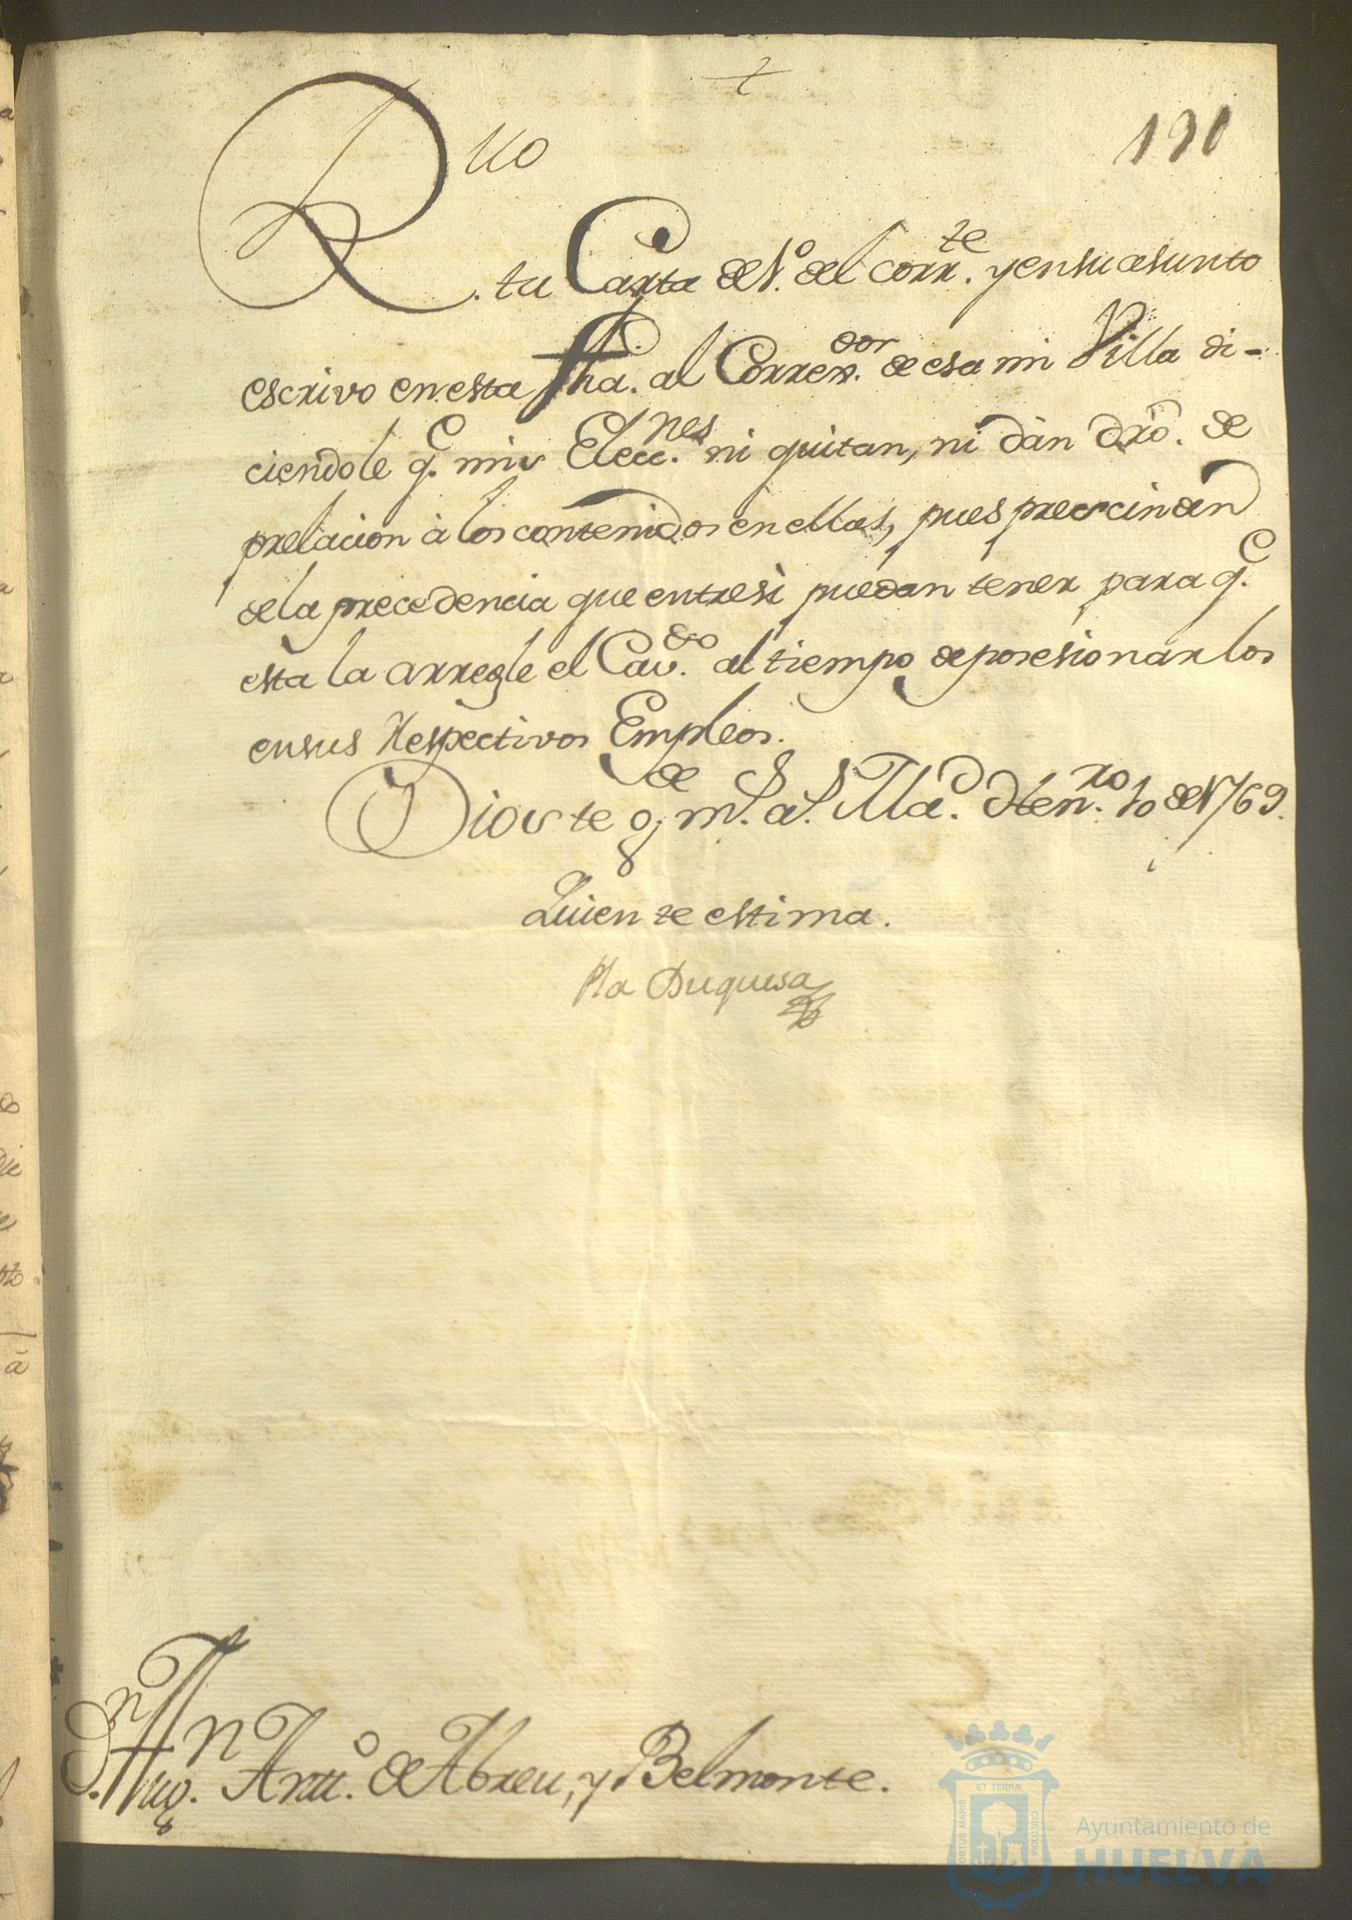 +
190
R.uo
tu Carta de 1.º del corr.te y en su asunto
escrivo en esta fha. al Corren.dor de esa mi Villa di-
ciendole q.e mis Elecc.nes ni quitan, ni dàn dr̃o. de
prelacion à los contenidos en ellas, pues prescinden
de la precedencia que entresì puedan tener para q.e
esta la arregle el Cav.do al tiempo de posesionar los
en sus Respectivos Empleos.
Dios te g.de m.s a.s Mad.d Hen.ro 10 de 1769.
Quien te estima.
La Duquesa
D.n Aug.n Ant.º de Abreu, y Belmonte.
PORTUS MARIS ET TERRÆ CUSTODIA
Ayuntamiento de
HUELVA